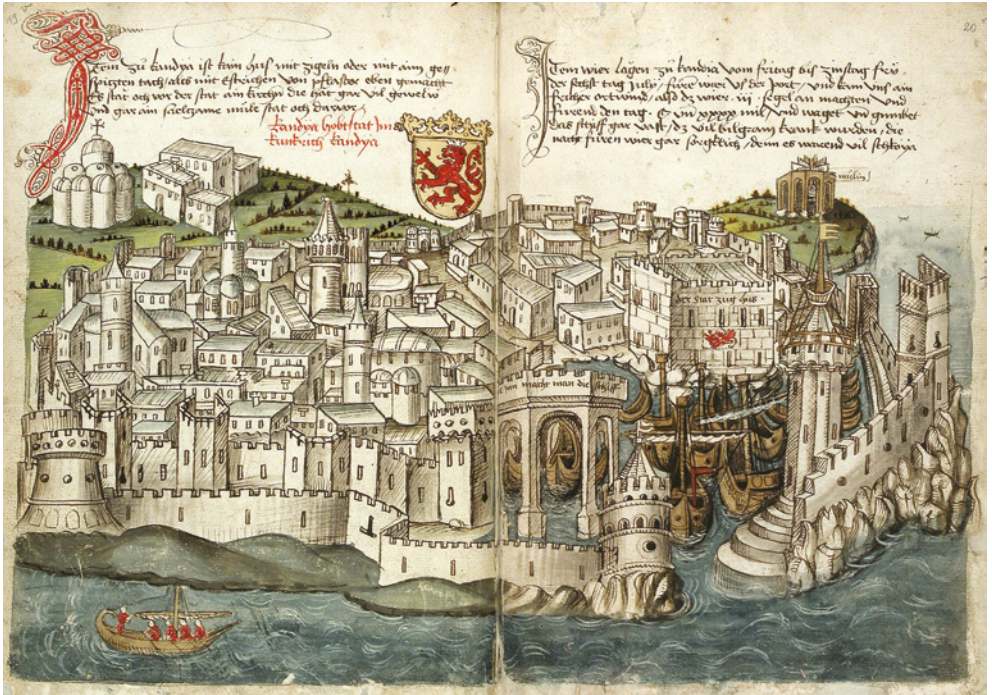 19
Item zü kandya ist kain hus mit zigeln oder mit aim ges
spitzten tach / alls mit estrichen von pflaster eben gemacht
Es stat och vor der stat ain kirchen die hat gar vil gewelw
und gar ain selczame müle stat och darvor
kandya hobtstat Im
kunkrich kandya
20
Item wier lagen zü kandia vom fritag bis zinstag fry.
der sechst tag July / füre wier us der port / und kam uns ain
frischer ortwind / also dz wier iij segel an machten und
fürend den tag C und xxxx mil und waget und gumbet
das schyff gar vast / dz vil bilgram krank wurden / die
nacht füren wier gar sorgklich / denn es warend vil schkoya
mülin
der stat zug hus
macht man die schiff